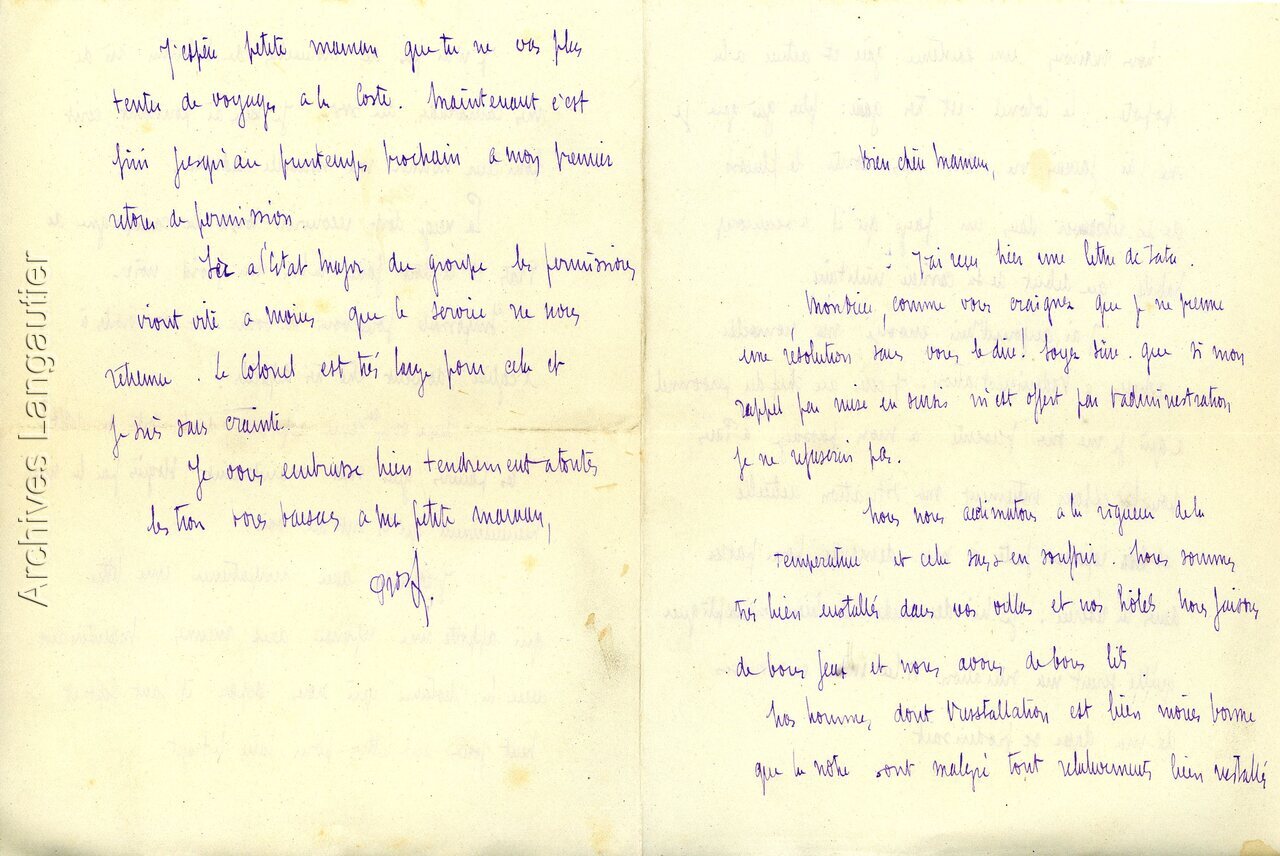 J'espère petite maman que tu ne vas plus
tenter de voyages à la Coste. Maintenant c'est
fini jusqu'au printemps prochain à mon premier
retour de permission
Ici a l'Etat Major du groupe les permissions
viront vite a moins que le service ne nous
retienne. Le Colonel est très large pour cela et
je suis sans crainte
Je vous embrasse bien tendrement a toutes
les trois bons baisers a ma petite maman,
Archives Langautier
Bien chère Maman,
J'ai reçu hier une lettre de Tata.
Mondieu comme vous craignez que je ne prenne
une résolution sans vous le dire! Soyez sûre que si mon
rappel par mise en sursis m'est offert par l'administration
je ne refuserai pas.
Nous nous acclimatons à la rigueur de la
température et cela sans en souffrir. Nous sommes
très bien installés dans nos villas et nos hôtels nous faisons
de bons feux et nous avons de bons lits
Nos hommes, dont l'installation est bien moins bonne
que la notre sont malgré tout relativements bien installés